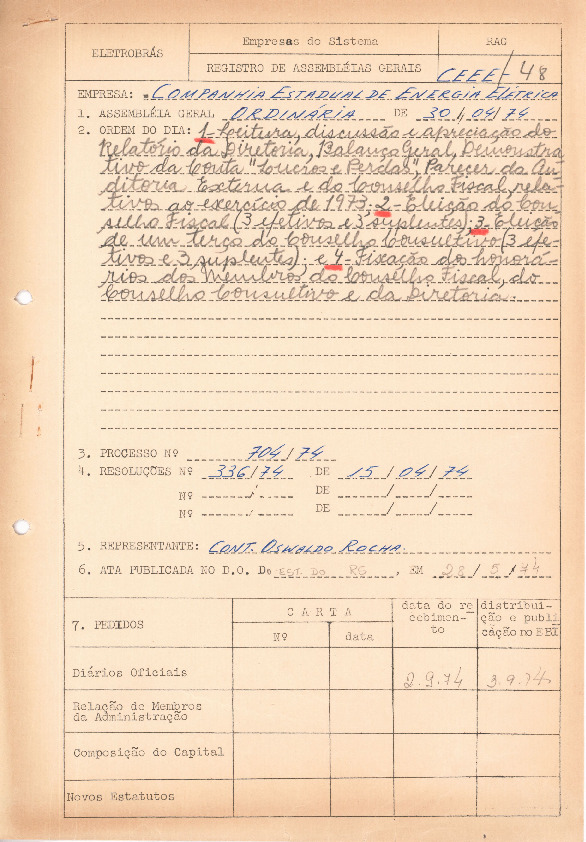 ELETROBRÁS
Empresas do Sistema
RAG
REGISTRO DE ASSEMBLÉIAS GERAIS
CEEE - 48
EMPRESA: COMPANHIA ESTADUAL DE ENERGIA ELÉTRICA
1. ASSEMBLÉIA GERAL ORDINÁRIA DE 30/04/74
2. ORDEM DO DIA: 1- Leitura, discussão e apreciação do
Relatório da Diretoria, Balanço Geral, Demonstra
tivo da Conta "Lucros e Perdas", Parecer da Au-
ditoria Externa e do Conselho Fiscal, rela-
tivos ao exercício de 1973. 2- Eleição do Con-
selho Fiscal (3 efetivos e 3 suplentes); 3- Eleição
de um terço do Conselho Consultivo (3 efe-
tivos e 3 suplentes); e 4- Fixação do honorá-
rios dos Membros do Conselho Fiscal, do
Conselho Consultivo e da Diretoria.
3. PROCESSO Nº 704/74
4. RESOLUÇÕES Nº 336/74 DE 15/04/74
Nº / DE / /
Nº / DE / /
5. REPRESENTANTE: CONT. OSWALDO ROCHA.
6. ATA PUBLICADA NO D.O. Do EST. DO RG, EM 28/5/74
7. PEDIDOS
CARTA
Nº
data
data do re
cebimen-
to
distribui-
ção e publi
cação no EBI
Diários Oficiais 2.9.74 3.9.74
Relação de Membros
da Administração
Composição do Capital
Novos Estatutos